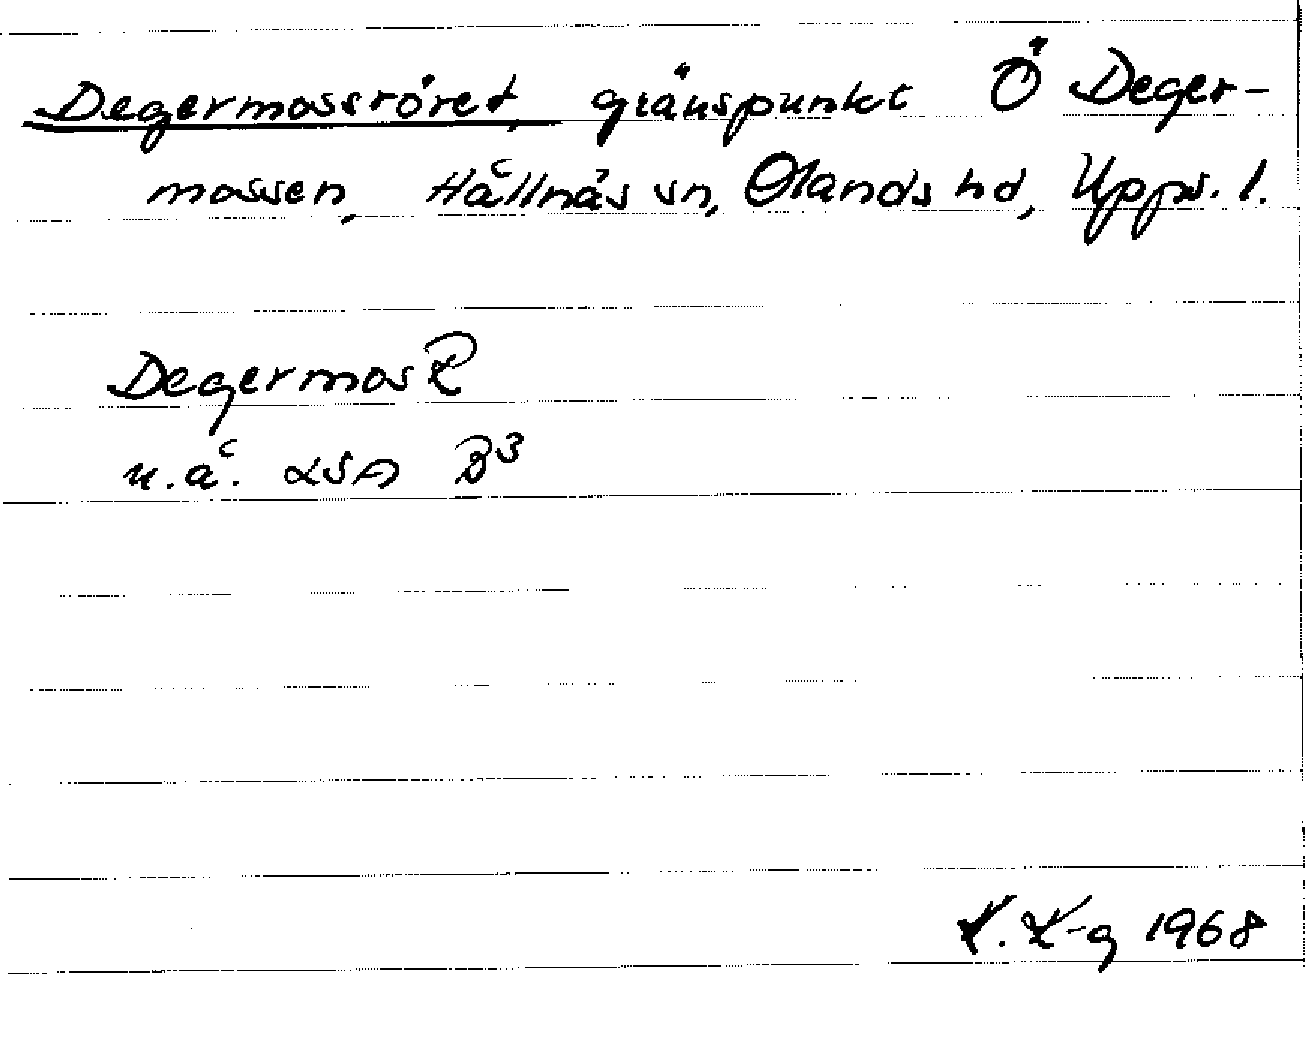 Degermossröret, gränspunkt Ö Deger-
mossen, Hållnäs sn, Olands hd, Upps. l.
Degermos R
u.å. LSA B3
K. K-g 1968